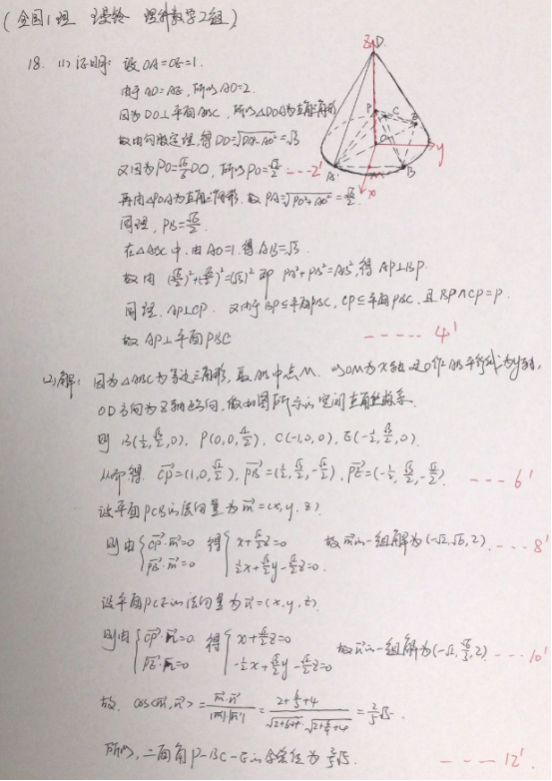 (全国1理 理科数学2组)
18. (1) 证明: 设OA=OE=1.
由于AD=AE, 所以AD=2.
因为DO⊥平面ABC, 所以△DOA为直角三角形
故由勾股定理, 得DO=√(DA²-AO²)=√3
又因为PO=√6/6 DO, 所以PO=√2/2 ---2'
再由△POA为直角三角形, 故PA=√(PO²+AO²)=√6/2.
同理, PB=√6/2.
在△ABC中, 由AO=1, 得AB=√3.
故由(√6/2)²+(√6/2)²=(√3)² 即PA²+PB²=AB², 得AP⊥BP.
同理, AP⊥CP. 又由于BP⊆平面PBC, CP⊆平面PBC, 且BP∩CP=P.
故AP⊥平面PBC ----- 4'
(2) 解: 因为△ABC为等边三角形, 取AB中点M. 以OM为x轴 过O作AB平行线为y轴,
OD方向为z轴正方向, 做如图所示的空间直角坐标系.
则B(1/2,√3/2,0), P(0,0,√2/2), C(-1,0,0), E(-1/2,√3/2,0).
从而得 CP=(1,0,√2/2), PB=(1/2,√3/2,-√2/2), PE=(-1/2,√3/2,-√2/2). --- 6'
设平面PCB的法向量为m=(x,y,z)
则由{CP·m=0 PB·m=0 得{x+√2/2z=0 1/2x+√3/2y-√2/2z=0. 故m的一组解为(-√2,√6,2). --- 8'
设平面PCE的法向量为n=(x,y,z)
则由{CP·n=0 PE·n=0 得{x+√2/2z=0 -1/2x+√3/2y-√2/2z=0 故n的一组解为(-√2,√6/3,2) --- 10'
故 cos<m,n>=m·n/|m||n|=(2+6/3+4)/(√(2+6+4)·√(2+2/3+4))=2/5√5.
所以, 二面角P-BC-E的余弦值为2/5√5. --- 12'
z D
P C E
O y
A M B
x